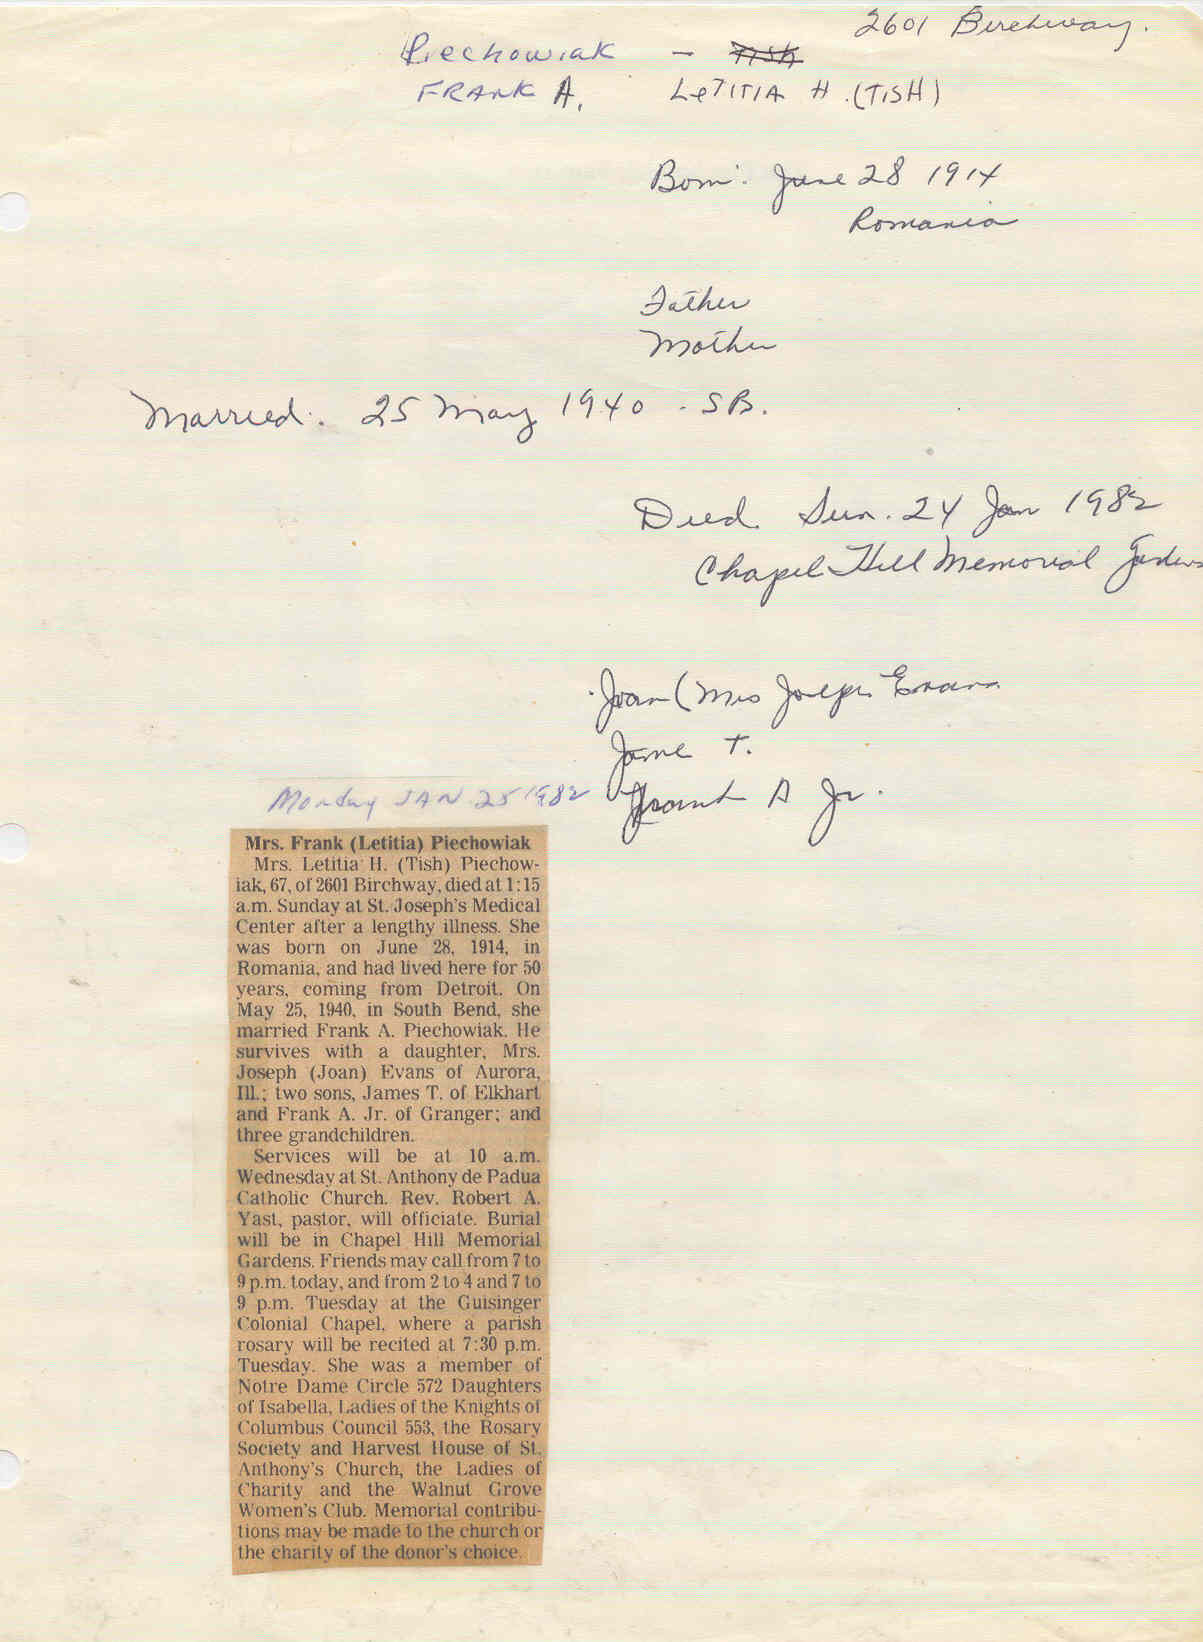 2601 Birchway.
Piechowiak - Tish
FRANK A. LeTITIA H. (TISH)
Born: June 28 1914
Romania
Father
Mother
Married: 25 May 1940 - SB.
Died Sun. 24 Jan 1982
Chapel Hill Memorial Gardens
Joan (Mrs Joseph Evans
Jame T.
Frank A Jr.
Monday JAN 25 1982
Mrs. Frank (Letitia) Piechowiak
Mrs. Letitia H. (Tish) Piechow-
iak, 67, of 2601 Birchway, died at 1:15
a.m. Sunday at St. Joseph's Medical
Center after a lengthy illness. She
was born on June 28, 1914, in
Romania, and had lived here for 50
years, coming from Detroit. On
May 25, 1940, in South Bend, she
married Frank A. Piechowiak. He
survives with a daughter, Mrs.
Joseph (Joan) Evans of Aurora,
Ill.; two sons, James T. of Elkhart
and Frank A. Jr. of Granger; and
three grandchildren.
Services will be at 10 a.m.
Wednesday at St. Anthony de Padua
Catholic Church. Rev. Robert A.
Yast, pastor, will officiate. Burial
will be in Chapel Hill Memorial
Gardens. Friends may call from 7 to
9 p.m. today, and from 2 to 4 and 7 to
9 p.m. Tuesday at the Guisinger
Colonial Chapel, where a parish
rosary will be recited at 7:30 p.m.
Tuesday. She was a member of
Notre Dame Circle 572 Daughters
of Isabella, Ladies of the Knights of
Columbus Council 553, the Rosary
Society and Harvest House of St.
Anthony's Church, the Ladies of
Charity and the Walnut Grove
Women's Club. Memorial contribu-
tions may be made to the church or
the charity of the donor's choice.